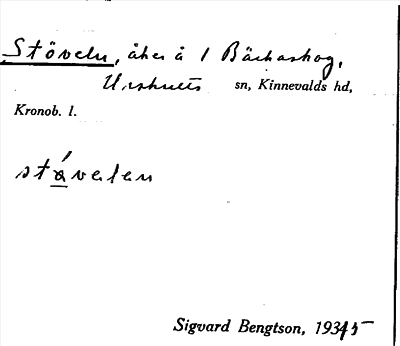 Stöveln, åker å 1 Bäckaskog,
Urshults sn, Kinnevalds hd,
Kronob. l.
stǻvelen
Sigvard Bengtson, 1935